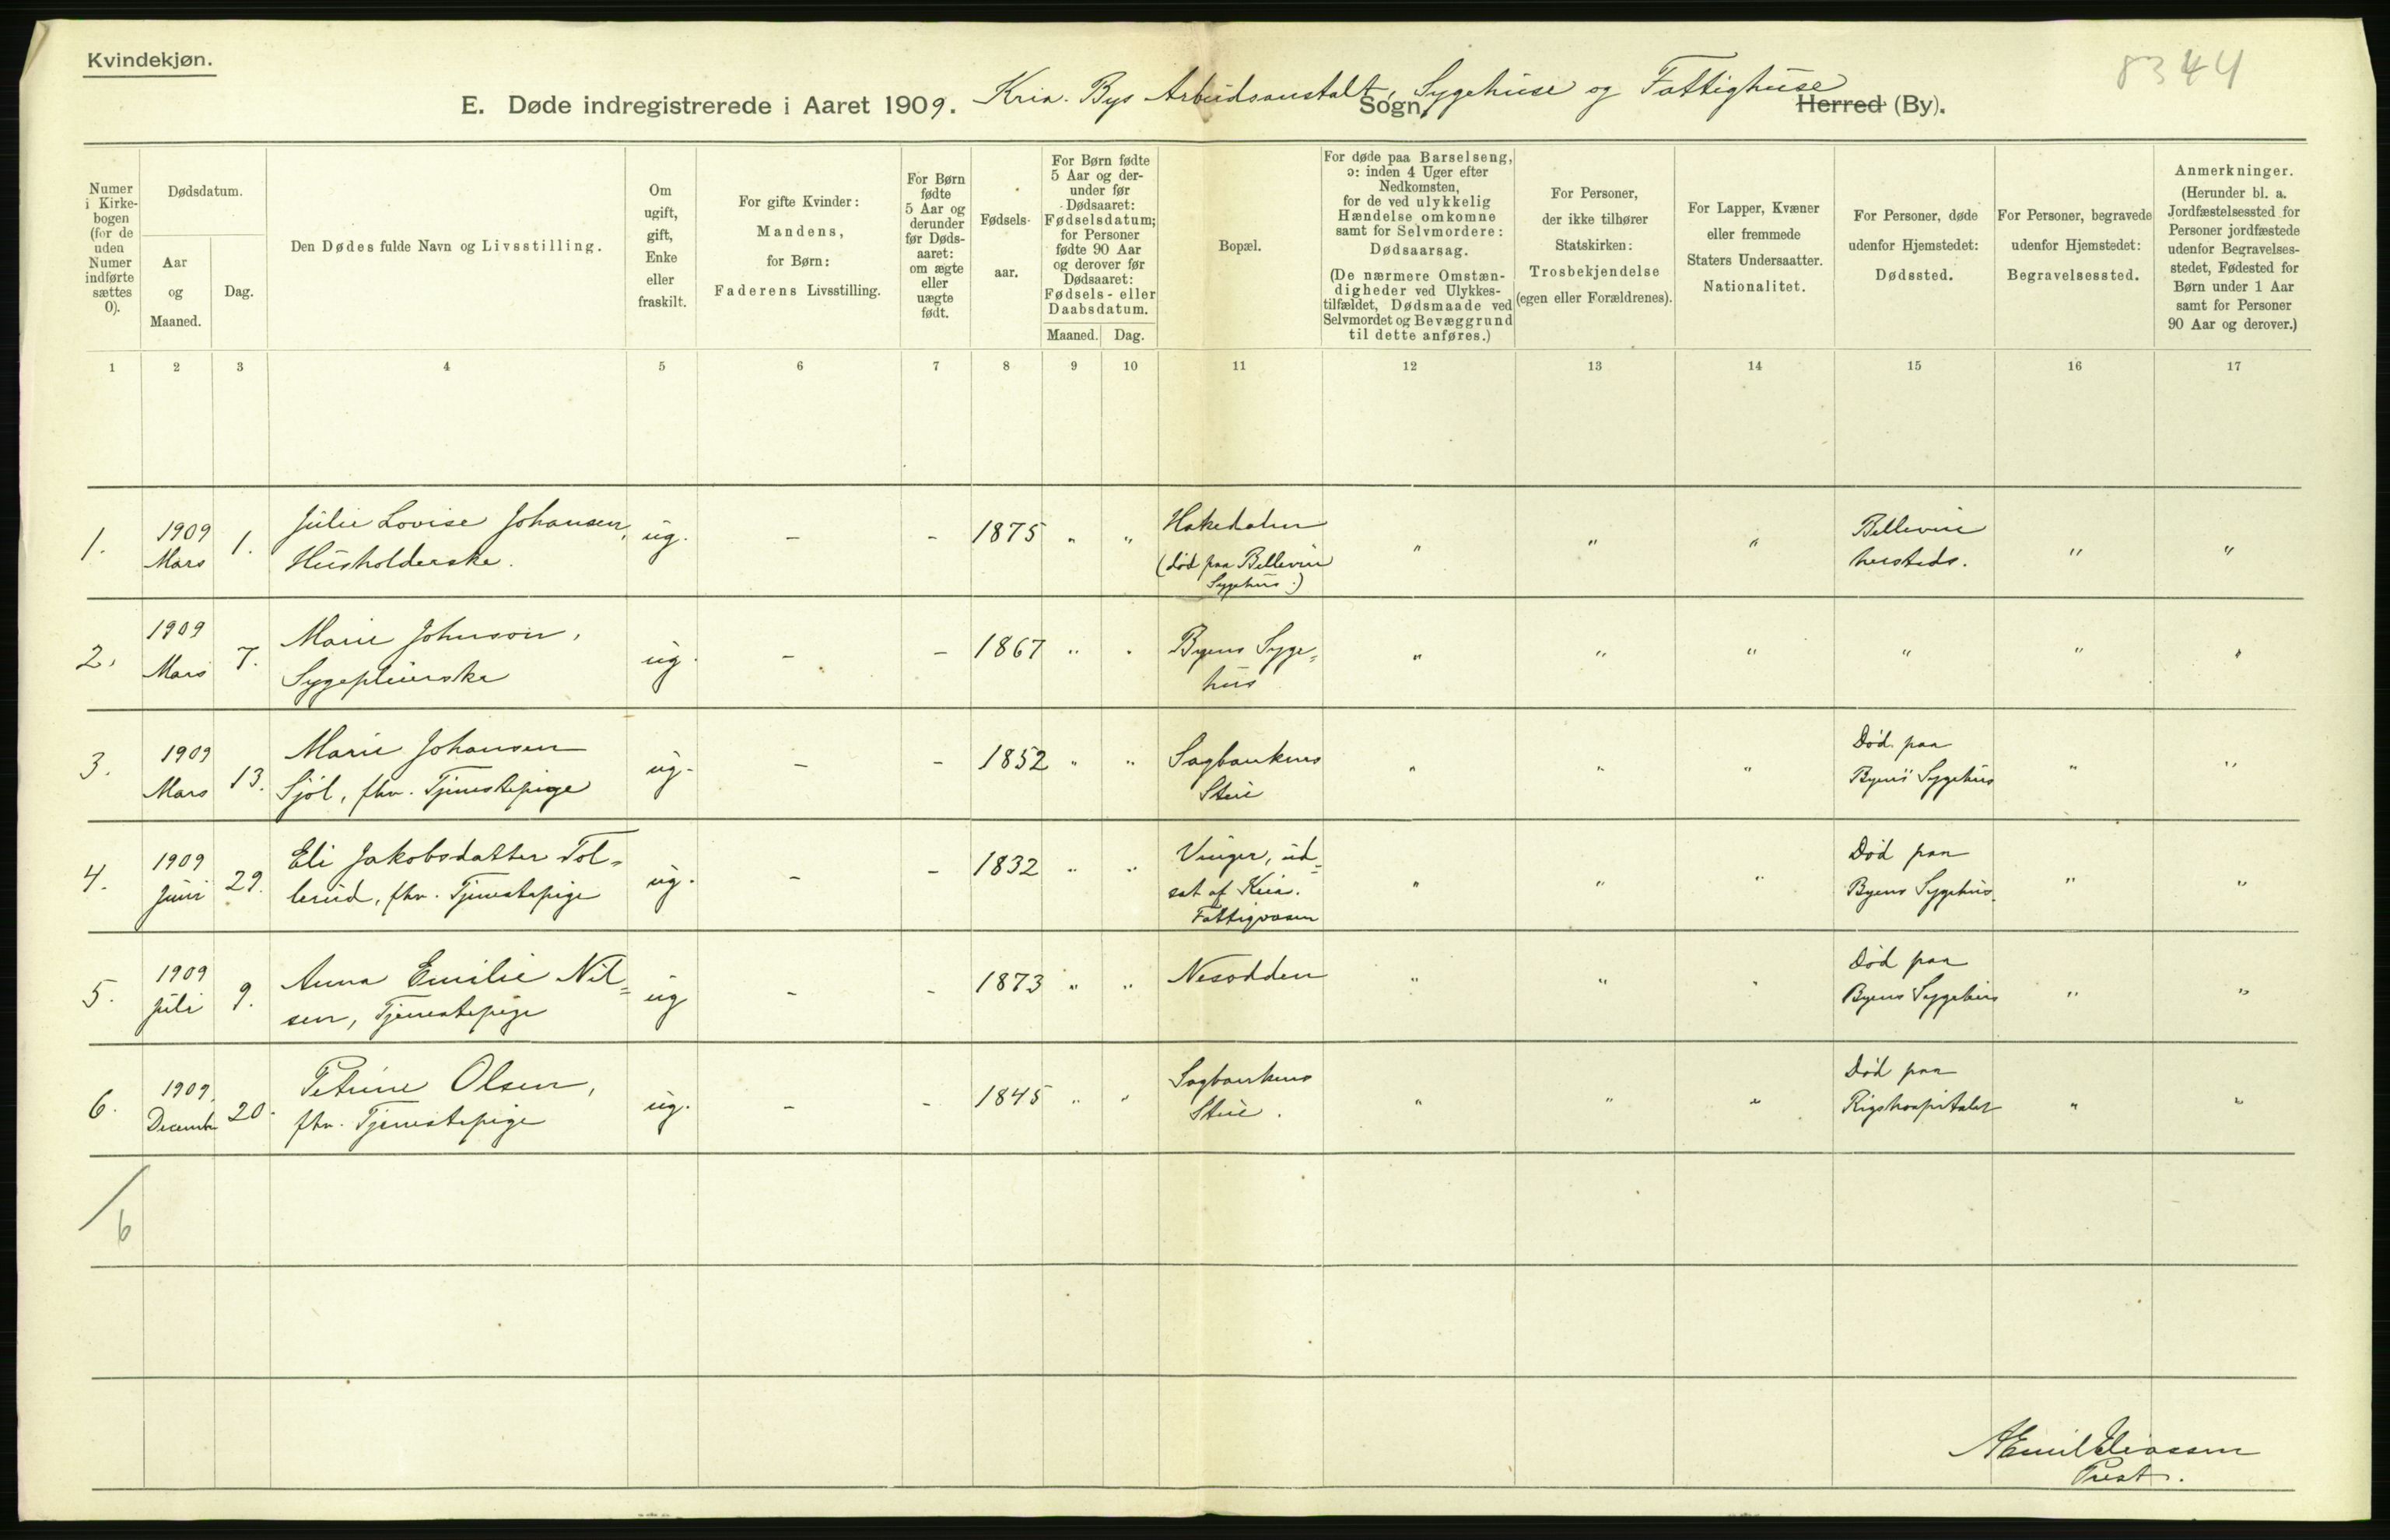 Kvindekjøn.
8344
E. Døde indregistrerede i Aaret 1909. Kria. Bys Arbeidsanstalt, Sygehuse og Fattighuse Sogn, Herred (By).
Numer i Kirkebogen (for de uden Numer indførte sættes 0).
Dødsdatum.
Aar og Maaned.
Dag.
Den Dødes fulde Navn og Livsstilling.
Om ugift, gift, Enke eller fraskilt.
For gifte Kvinder: Mandens, for Børn: Faderens Livsstilling.
For Børn fødte 5 Aar og derunder før Dødsaaret: om ægte eller uægte født.
Fødselsaar.
For Børn fødte 5 Aar og derunder før Dødsaaret: Fødselsdatum; for Personer fødte 90 Aar og derover før Dødsaaret: Fødsels- eller Daabsdatum.
Maaned. Dag.
Bopæl.
For døde paa Barselseng, ɔ: inden 4 Uger efter Nedkomsten, for de ved ulykkelig Hændelse omkomne samt for Selvmordere: Dødsaarsag.
(De nærmere Omstændigheder ved Ulykkestilfældet, Dødsmaade ved Selvmordet og Bevæggrund til dette anføres.)
For Personer, der ikke tilhører Statskirken: Trosbekjendelse (egen eller Forældrenes).
For Lapper, Kvæner eller fremmede Staters Undersaatter. Nationalitet.
For Personer, døde udenfor Hjemstedet: Dødssted.
For Personer, begravede udenfor Hjemstedet: Begravelsessted.
Anmerkninger.
(Herunder bl. a. Jordfæstelsessted for Personer jordfæstede udenfor Begravelsesstedet, Fødested for Børn under 1 Aar samt for Personer 90 Aar og derover.)
1 2 3 4 5 6 7 8 9 10 11 12 13 14 15 16 17
1. 1909 Mars 1. Julie Lovise Johansen, Husholderske. ug. - - 1875 " " Hakedalen (død paa Bellevue Sygehus.) " " " Bellevue hersteds. " "
2. 1909 Mars 7. Marie Johnson, Sygepleierske ug. - - 1867 " " Byens Sygehus " " " " " "
3. 1909 Mars 13. Marie Johansen Sjöl, fhv. Tjenestepige ug. - - 1852 " " Sagbankens Stue " " " Död paa Byens Sygehus " "
4. 1909 Juni 29. Eli Jakobsdatter Tollerud, fhv. Tjenestepige ug. - - 1832 " " Vinger, udsat af Kria. Fattigvæsen " " " Död paa Byens Sygehus. " "
5. 1909 Juli 9. Anna Emilie Nilsen, Tjenestepige ug - - 1873 " " Nesodden " " " Död paa Byens Sygehus " "
6. 1909. Decembr 20. Petrine Olsen, fhv. Tjenestepige ug. - - 1845 " " Sagbankens Stue. " " " Död paa Rigshospitalet " "
/6
Emil Eliassen
Prest.